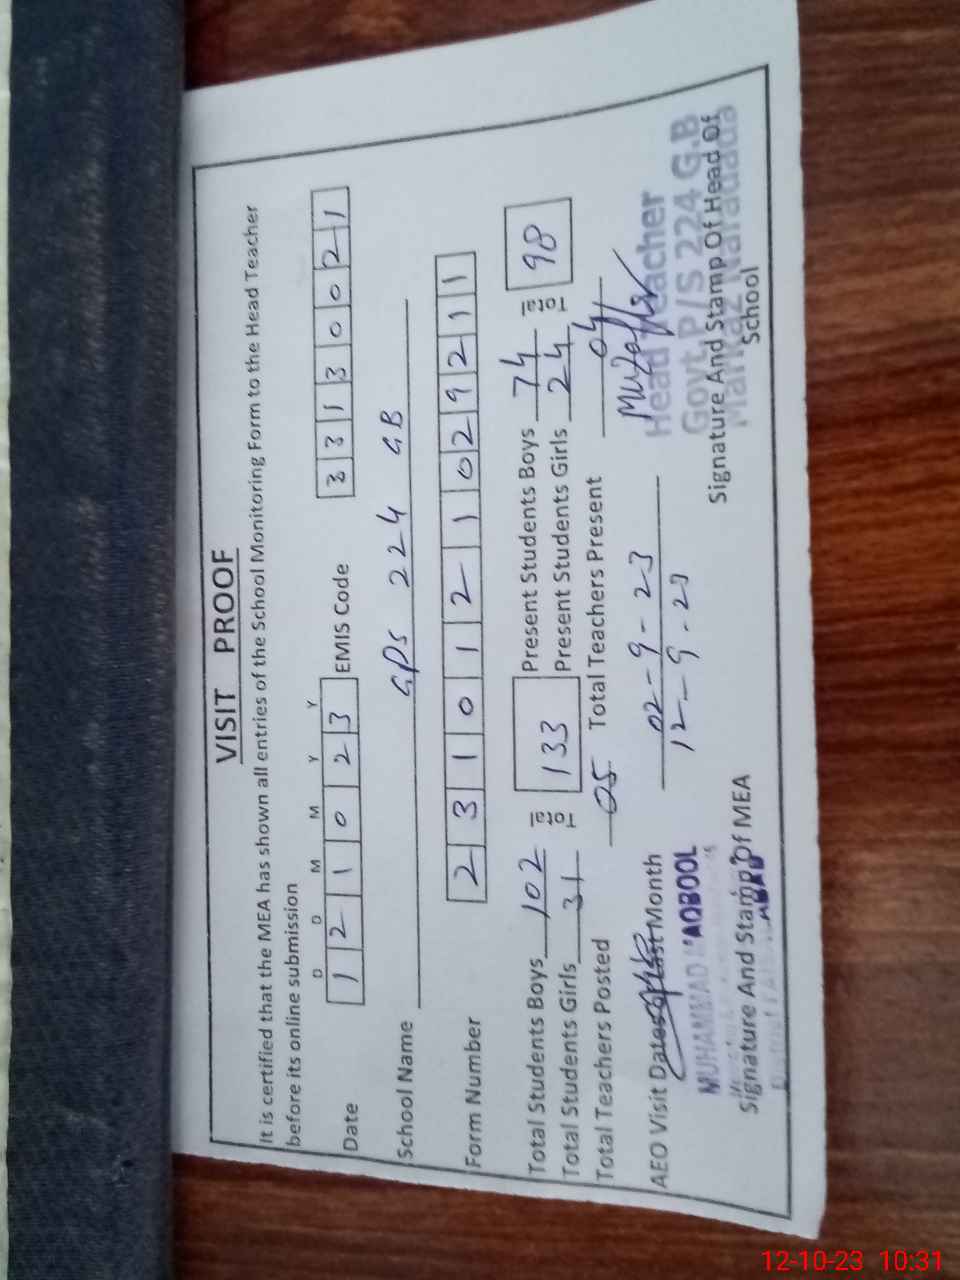 VISIT PROOF
It is certified that the MEA has shown all entries of the School Monitoring Form to the Head Teacher
before its online submission
D D M M Y Y
Date 1 2 1 0 2 3 EMIS Code 3 3 1 3 0 0 2 1
School Name GPS 224 GB
Form Number 2 3 1 0 1 2 1 1 0 2 9 2 1 1
Total Students Boys 102 Total 133 Present Students Boys 74 Total 98
Total Students Girls 31 Present Students Girls 24
Total Teachers Posted 05 Total Teachers Present 04
AEO Visit Dates of Last Month 02-9-23
12-9-23
MUHAMMAD
Head Teacher
Govt. P/S 224 G.B
Markaz
Signature And Stamp Of MEA
Signature And Stamp Of Head Of
School
12-10-23 10:31